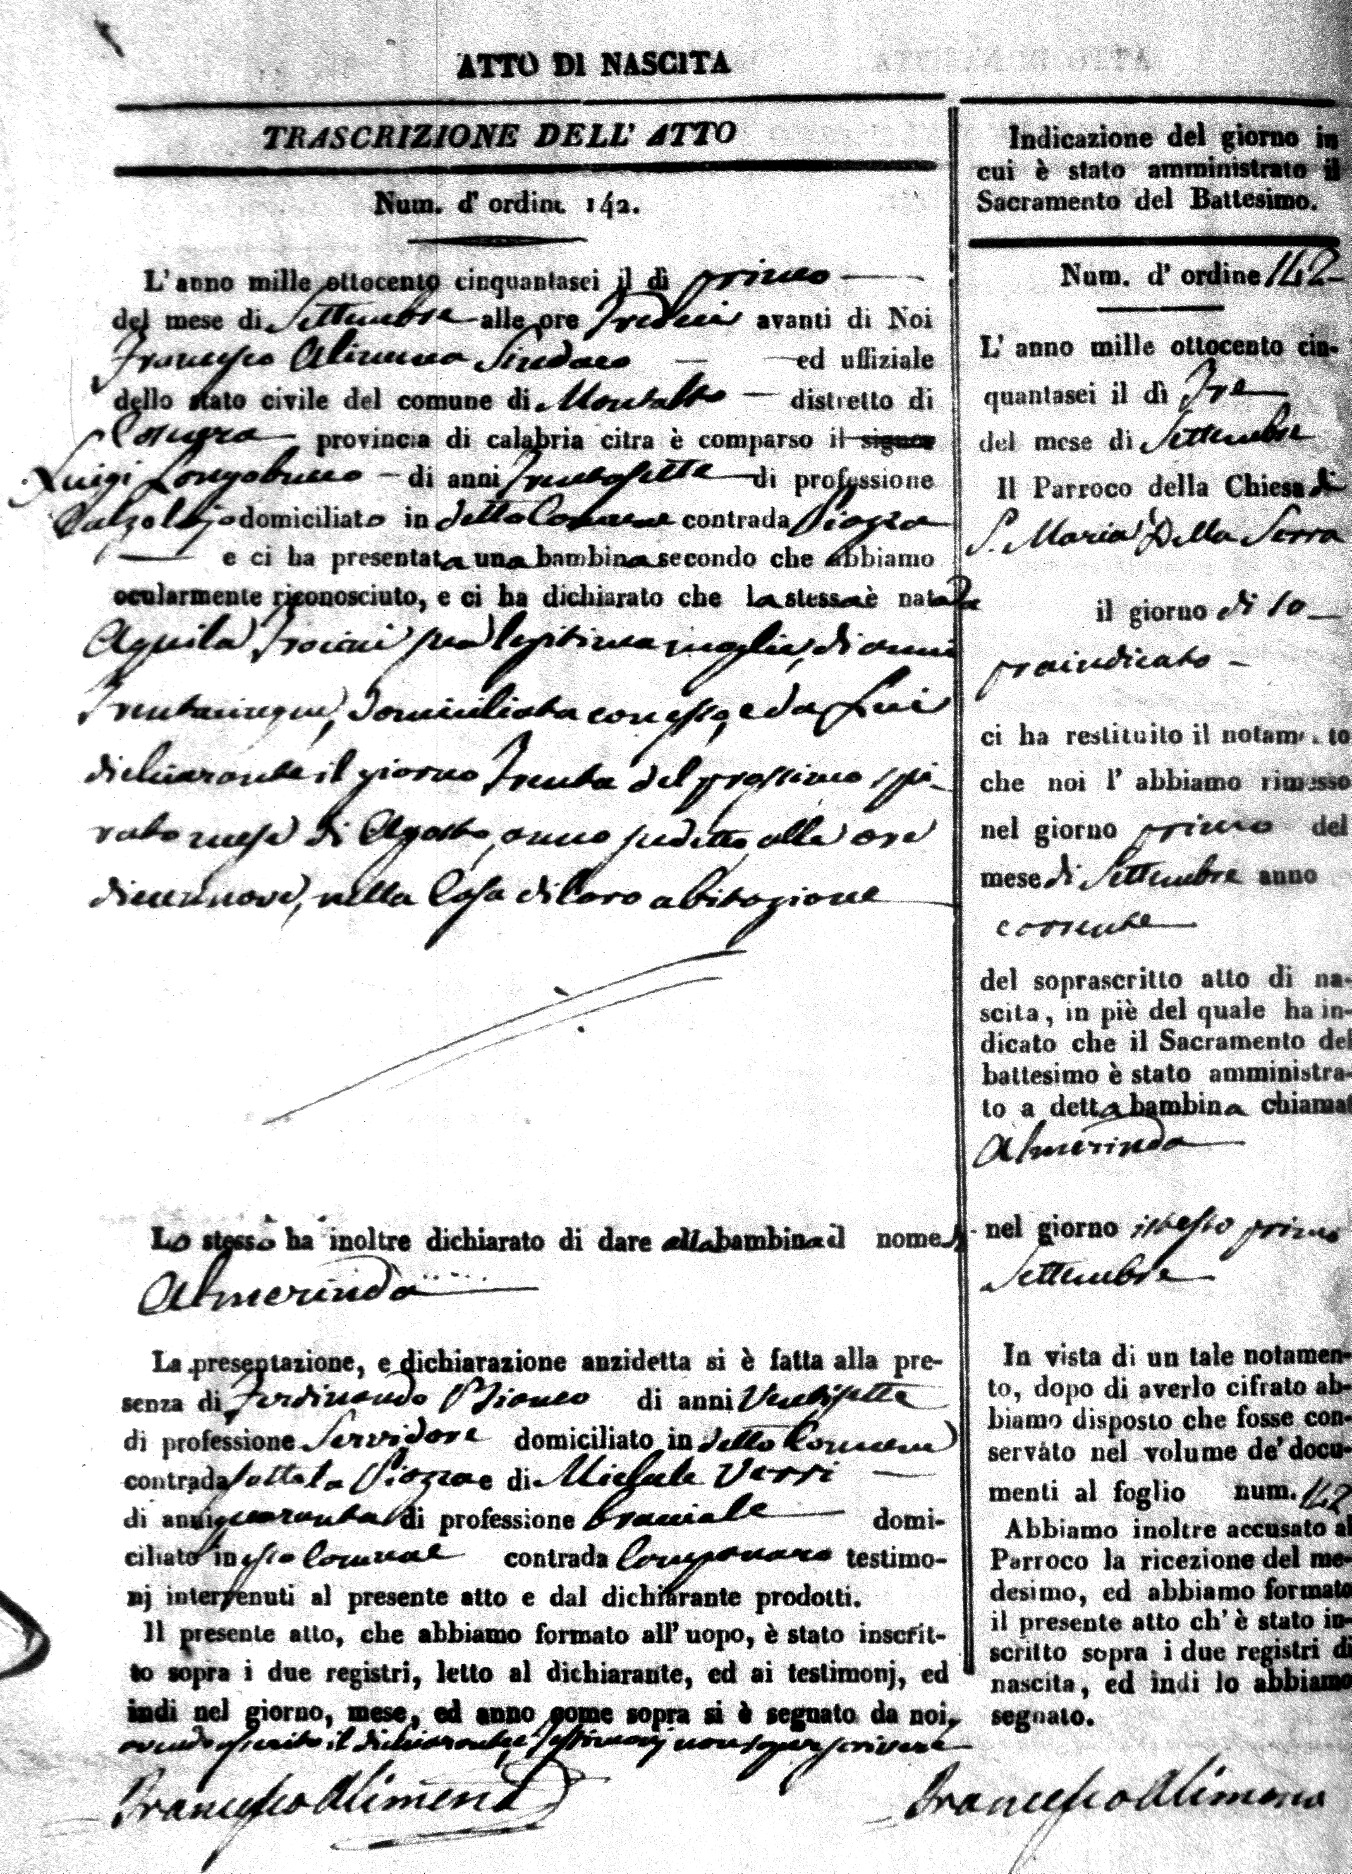 ATTO DI NASCITA
TRASCRIZIONE DELL' ATTO
Num. d' ordine 142.
L' anno mille ottocento cinquantasei il dì primo
del mese di Settembre alle ore Tredici avanti di Noi
Francesco Alimena Sindaco ed uffiziale
dello stato civile del comune di Montalto distretto di
Cosenza provincia di calabria citra è comparso il signor
Luigi Longobucco di anni Trentasette di professione
Calzolajo domiciliato in detto Comune contrada Piazza
e ci ha presentata una bambina secondo che abbiamo
ocularmente riconosciuto, e ci ha dichiarato che la stessa è nata Da
Aquila Troiani sua legittima moglie, di anni
Trentacinque, domiciliata con esso, e da Lui
dichiarante il giorno Trenta del prossimo spi-
rato mese di Agosto, anno sudetto, alle ore
diecinnove, nella Casa di loro abitazione
Lo stesso ha inoltre dichiarato di dare alla bambina il nome di
Almerinda
La presentazione, e dichiarazione anzidetta si è fatta alla pre-
senza di Ferdinando Bianco di anni Ventisette
di professione Servidore domiciliato in detto Comune
contrada sotto la Piazza e di Michele Verri
di anni quaranta di professione braciale domi-
ciliato in esso Comune contrada testimo-
nj intervenuti al presente atto e dal dichiarante prodotti.
Il presente atto, che abbiamo formato all' uopo, è stato inscrit-
to sopra i due registri, letto al dichiarante, ed ai testimonj, ed
indi nel giorno, mese, ed anno come sopra si è segnato da noi,
avendo asserito il dichiarante, e Testimonj non saper scrivere
Francesco Alimena
Indicazione del giorno in
cui è stato amministrato il
Sacramento del Battesimo.
Num. d' ordine 142
L' anno mille ottocento cin-
quantasei il dì Tre
del mese di Settembre
Il Parroco della Chiesa di
S. Maria Della Serra
il giorno di so
praindicato
ci ha restituito il notamento
che noi l' abbiamo rimesso
nel giorno primo del
mese di Settembre anno
corrente
del soprascritto atto di na-
scita, in piè del quale ha in-
dicato che il Sacramento del
battesimo è stato amministra-
to a detta bambina chiamat
Almerinda
nel giorno istesso primo
Settembre
In vista di un tale notamen-
to, dopo di averlo cifrato ab-
biamo disposto che fosse con-
servato nel volume de' docu-
menti al foglio num. 142
Abbiamo inoltre accusato al
Parroco la ricezione del me-
desimo, ed abbiamo formato
il presente atto ch' è stato in-
scritto sopra i due registri di
nascita, ed indi lo abbiamo
segnato.
Francesco Alimena